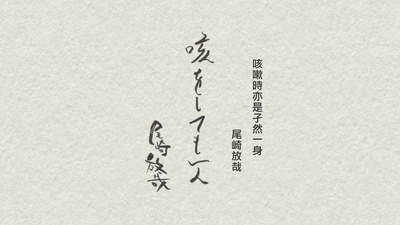 咳嗽時亦是孑然一身
尾崎放哉
咳をしても一人
尾崎放哉